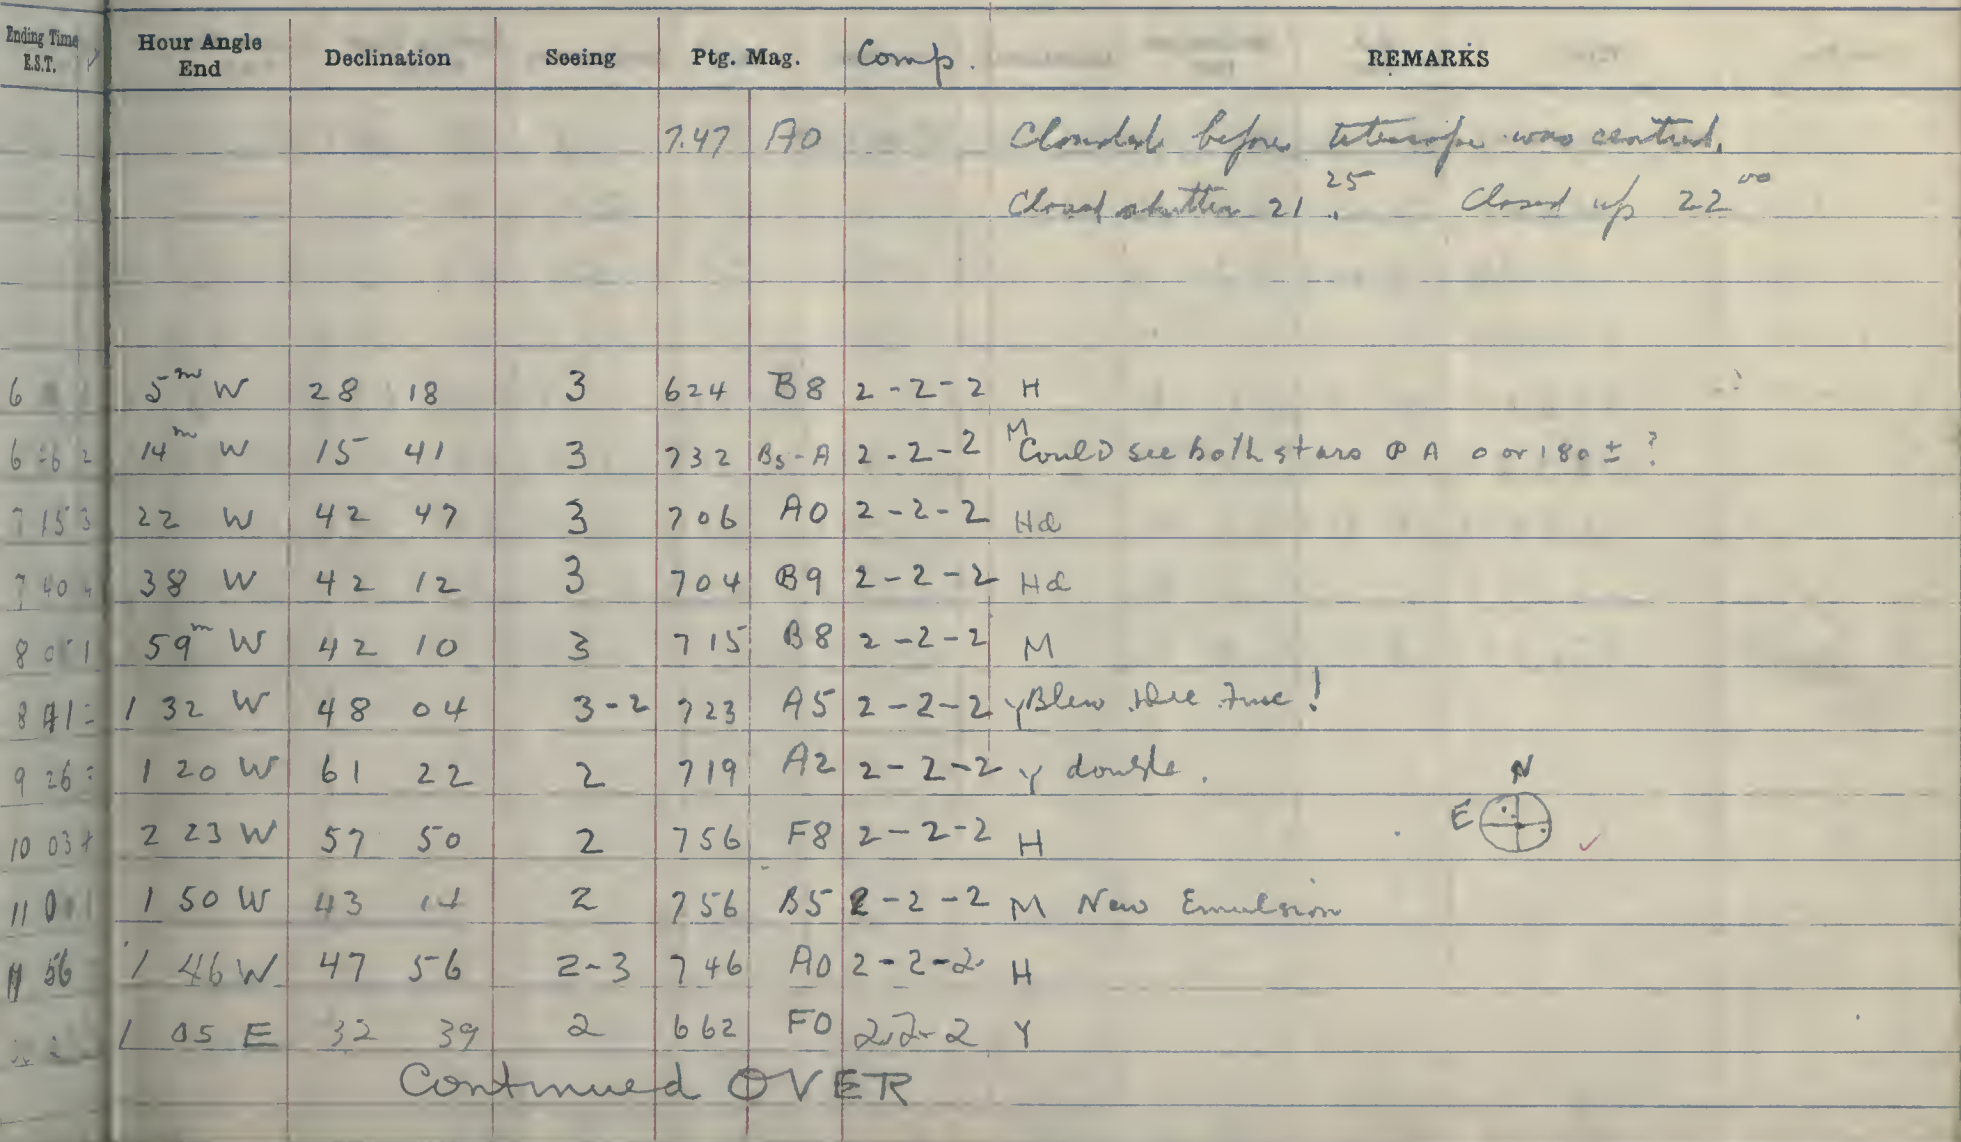 Ending Time E.S.T. Hour Angle End Declination Seeing Ptg. Mag. Comp. REMARKS
7.47 A0 Clouded before telescope was centred.
Closed shutter 21.25 Closed up 22 00
6 5m W 28 18 3 624 B8 2-2-2 H
6 14m W 15 41 3 732 B5-A 2-2-2 M Could see both stars PA 0 or 180 ± ?
7 15 22 W 42 47 3 706 A0 2-2-2 Hd
7 40 38 W 42 12 3 704 B9 2-2-2 Hd
8 05 59m W 42 10 3 715 B8 2-2-2 M
8 41 1 32 W 48 04 3-2 723 A5 2-2-2 Y Blew the fuse!
9 26 1 20 W 61 22 2 719 A2 2-2-2 Y double.
N
E
10 03 2 23 W 57 50 2 756 F8 2-2-2 H
11 1 50 W 43 14 2 756 B5 2-2-2 M New Emulsion
11 56 1 46 W 47 56 2-3 746 A0 2-2-2 H
1 05 E 32 39 2 662 F0 2-2-2 Y
Continued OVER